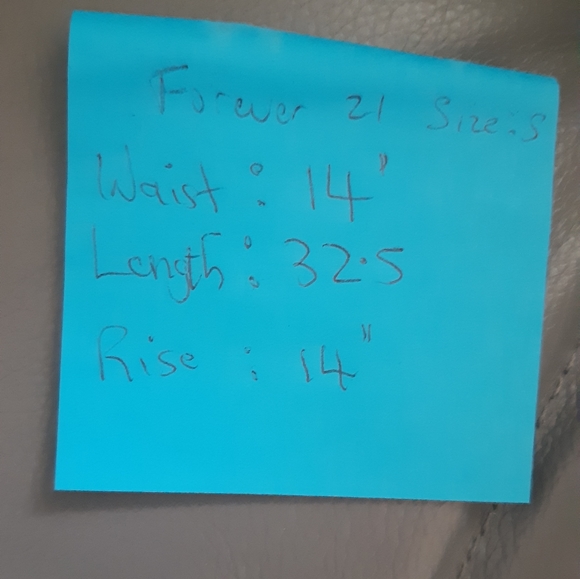 Forever 21 Size:S
Waist : 14"
Length : 32.5
Rise : 14"